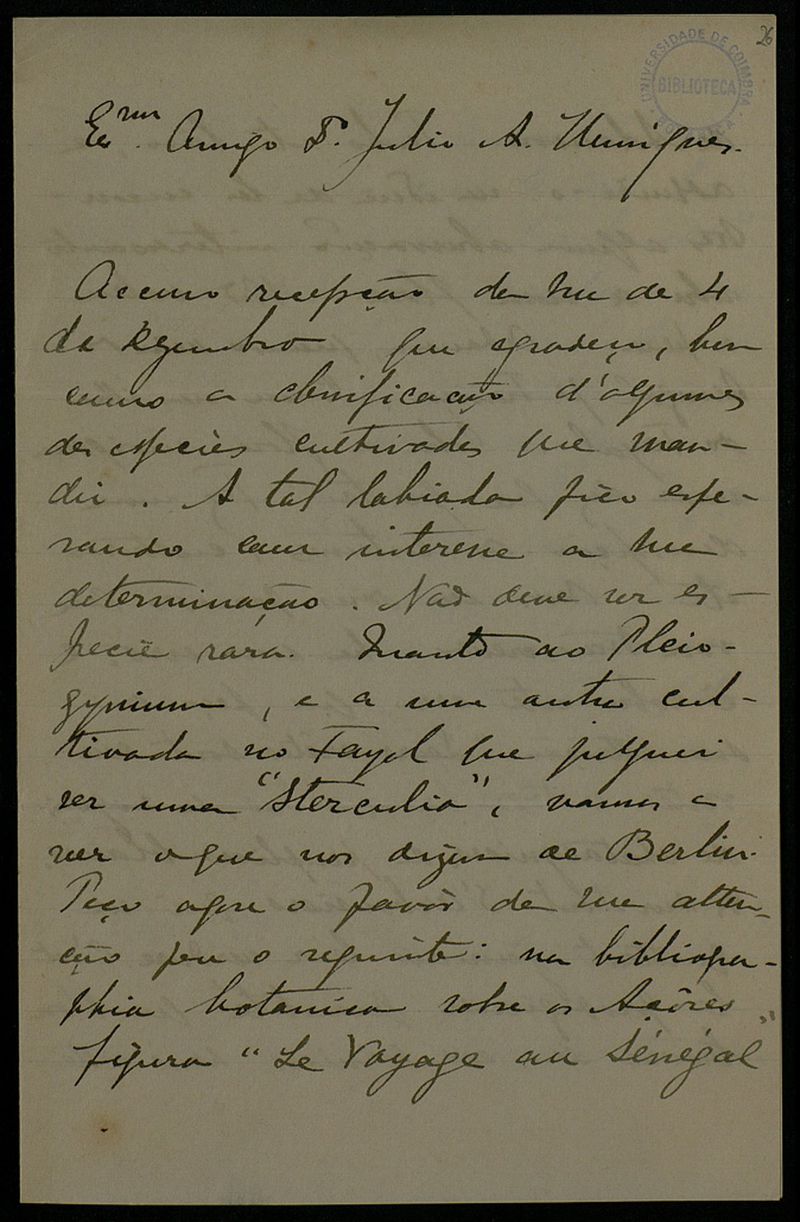 26
UNIVERSIDADE DE COIMBRA
BIBLIOTECA
Exmo. Amigo Dr. Julio A. Henriques.
Accuso recepção da sua de 4
de Dezembro que agradeço, bem
como a classificação d'algumas
das especies cultivadas que man-
dei. A tal labiada fico espe-
rando com interesse a sua
determinação. Não deve ser es-
pecie rara. Quanto ao Pleio-
gynium, e a uma outra cul-
tivada no Fayal que julguei
ser uma "Sterculia", vamos a
ver o que nos dizem de Berlin.
Peço agora o favôr da sua atten-
ção para o seguinte: na bibliogra-
phia botanica sobre os Açôres
figura "Le Voyage au Sénégal"